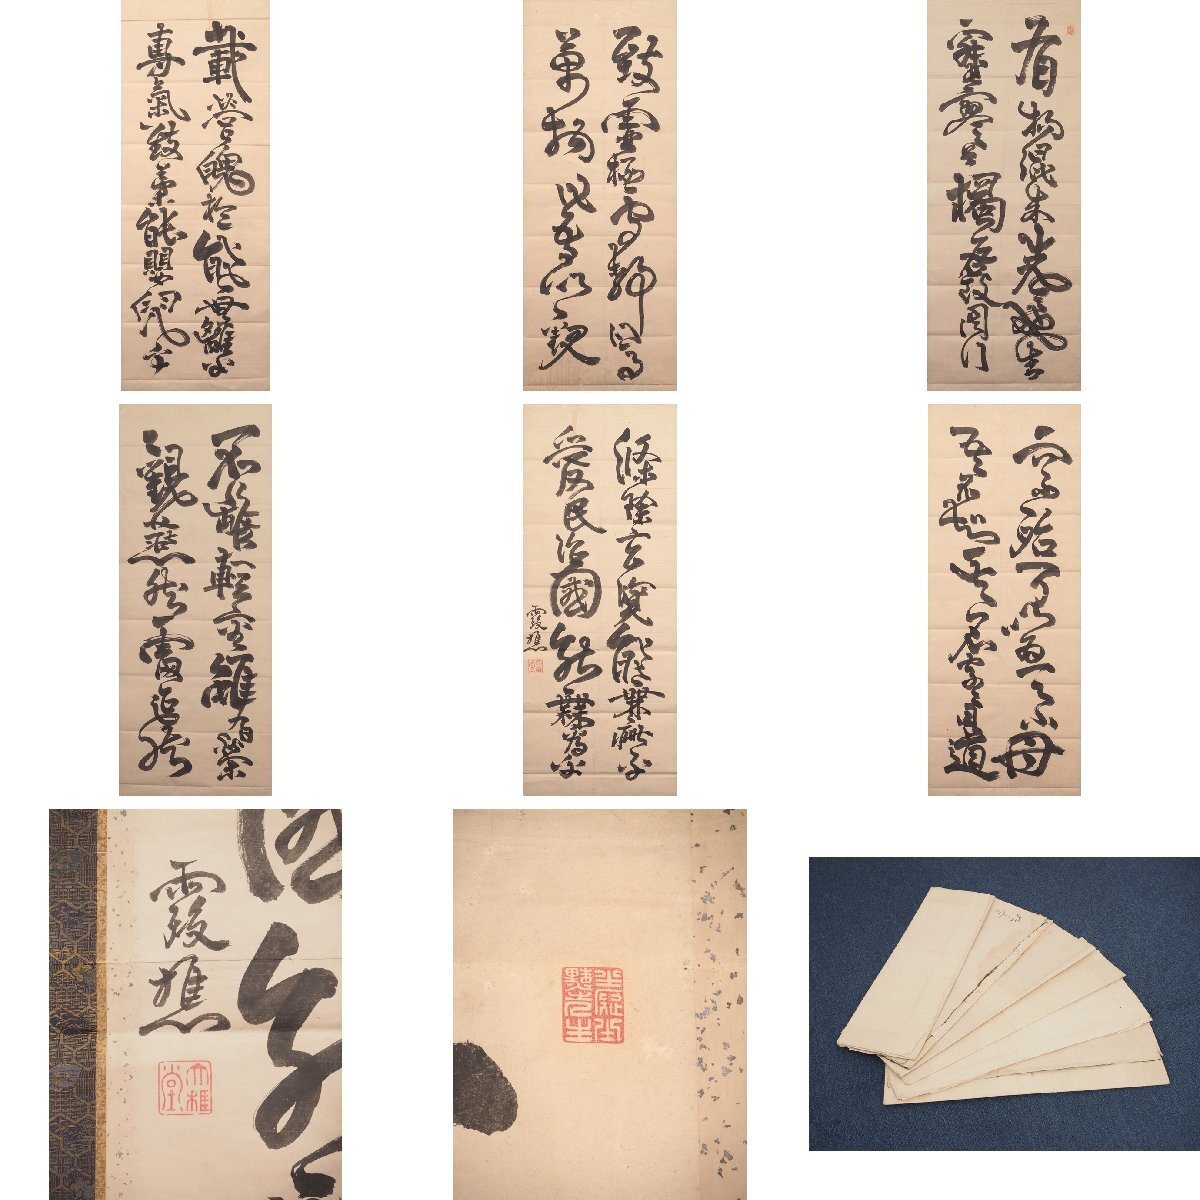 載營魄抱能無離乎
專氣致柔能嬰兒乎
致虛極守靜篤
萬物吾以觀
有物混成先天地生
寂寥兮獨立不改周行
不離輜重雖有榮
觀燕超然
滌除玄覽能無疵乎
愛民治國能無為乎
霞樵
而不殆可以為天下母
吾不知其名字之曰道
霞樵
大雅堂